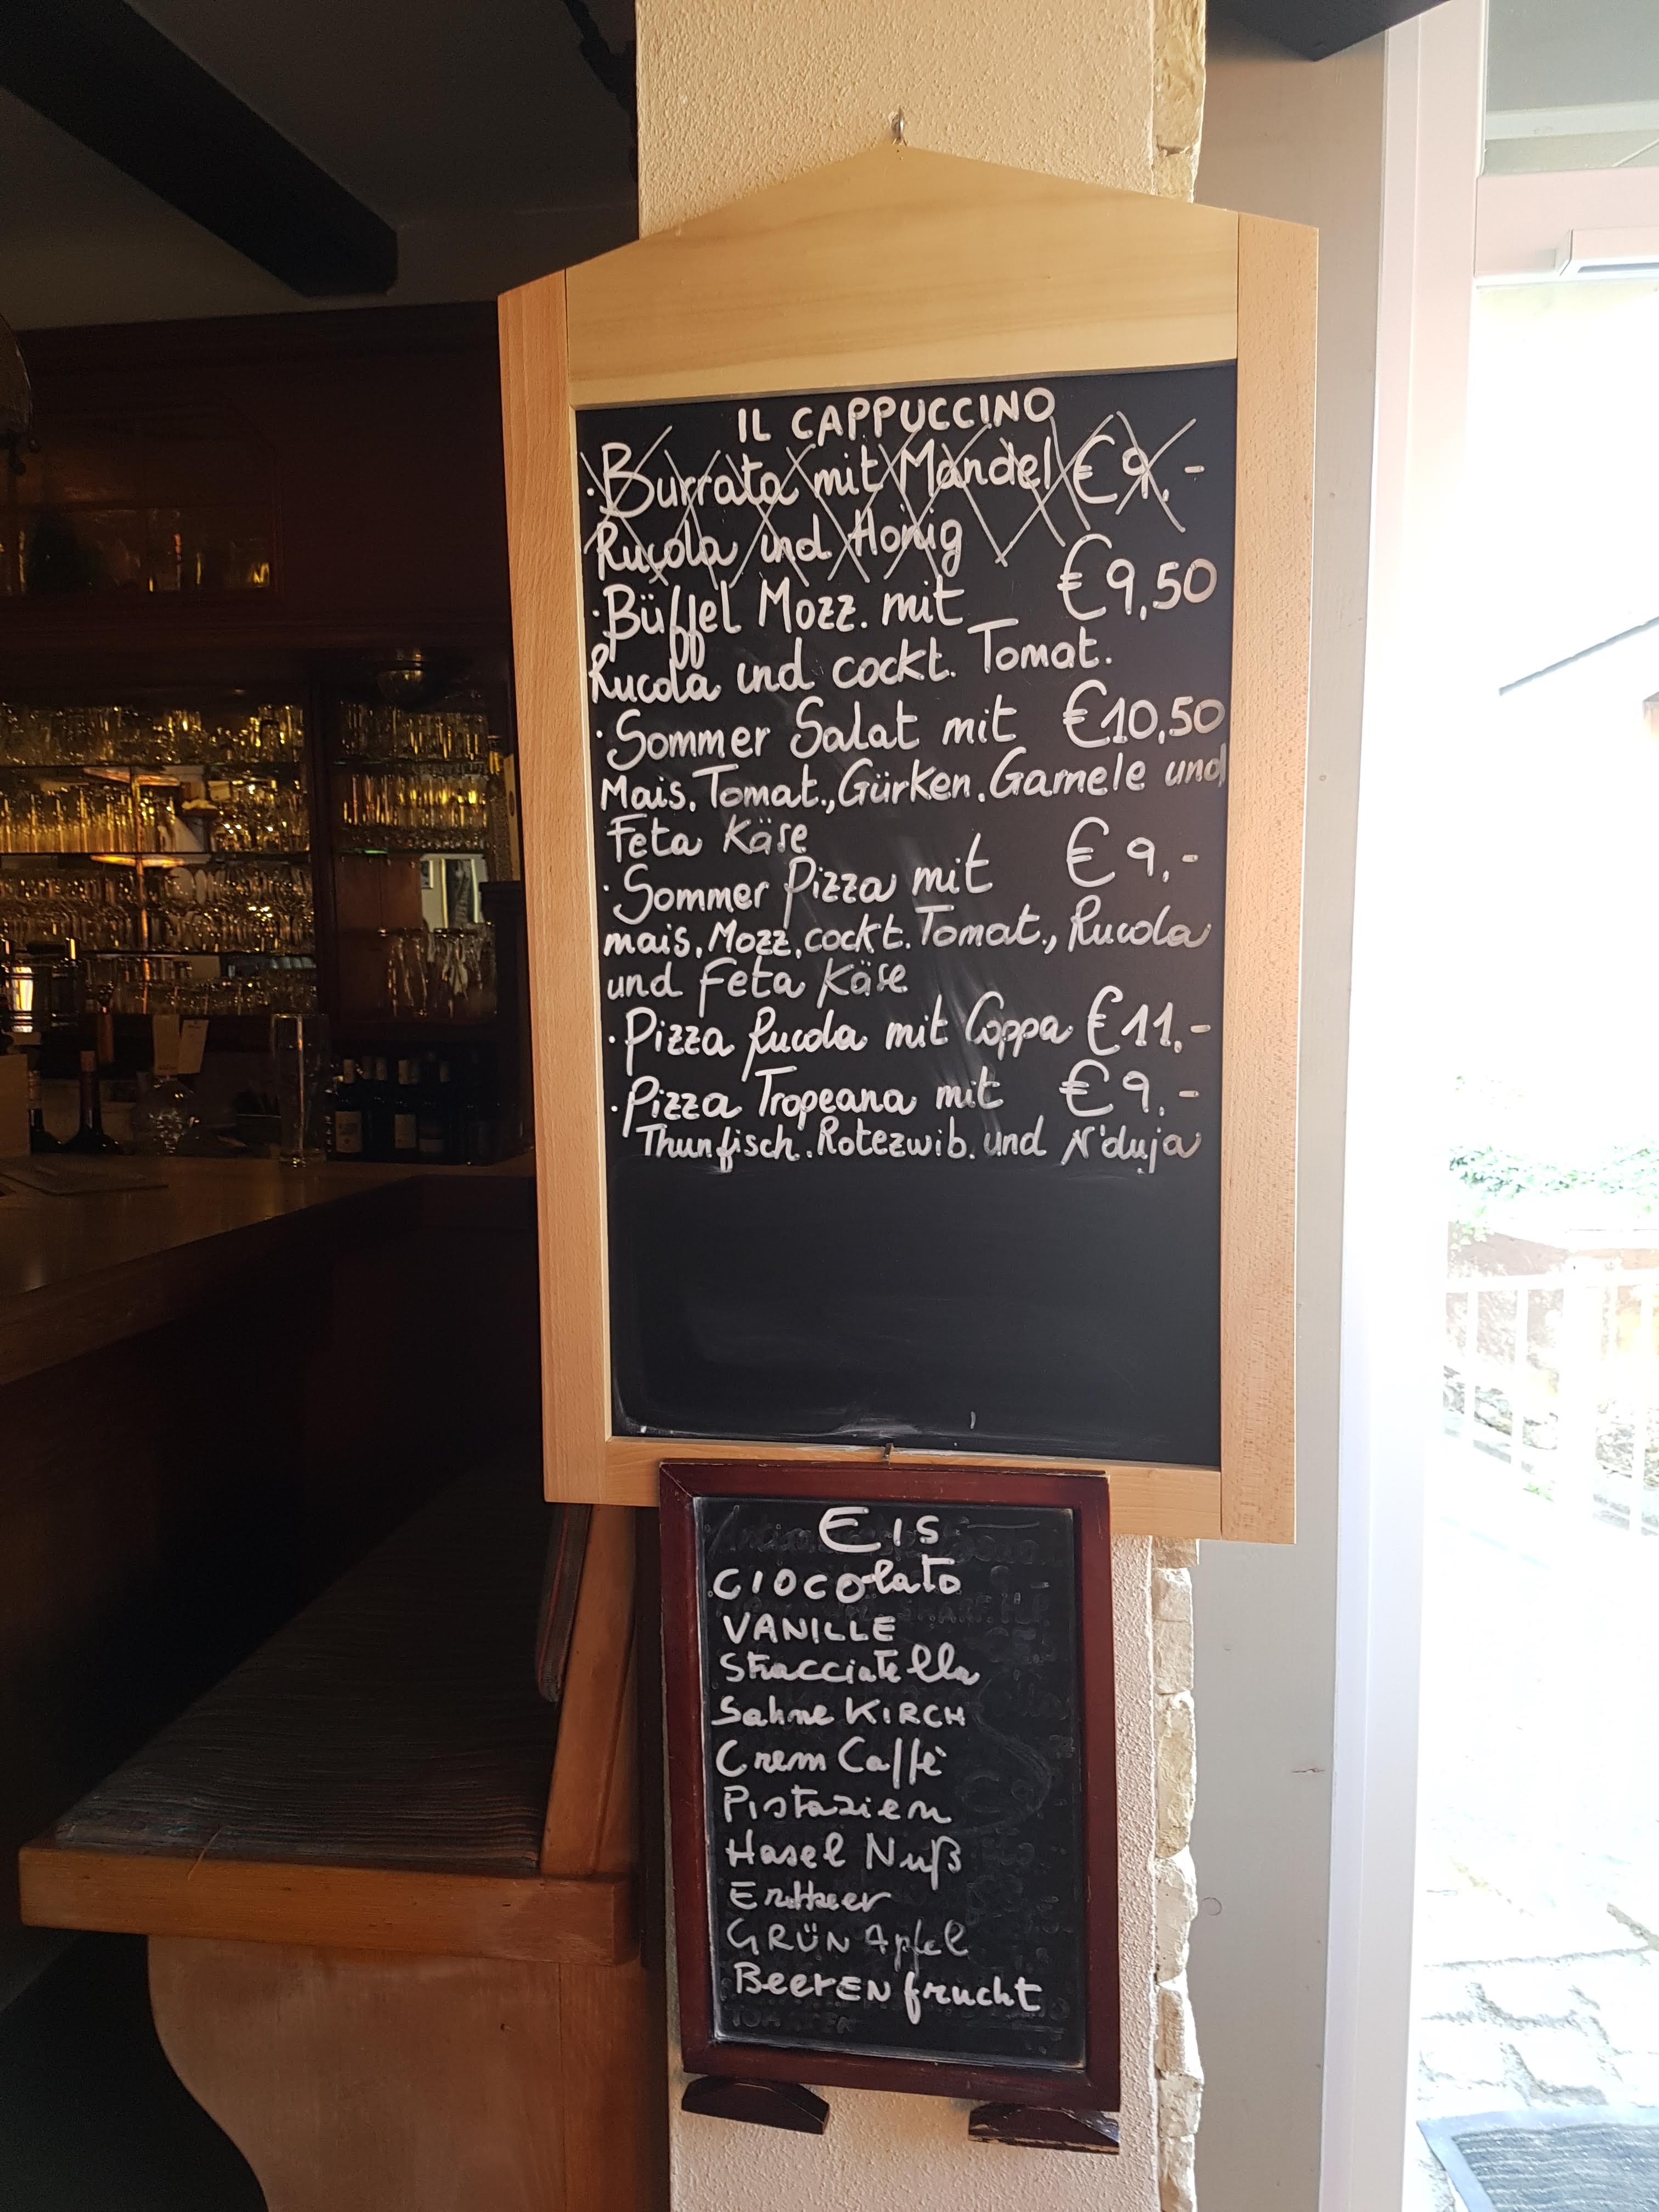 IL CAPPUCCINO
·Burrata mit Mandel €9,-
Rucola und Honig
·Büffel Mozz. mit €9,50
Rucola und cockt. Tomat.
·Sommer Salat mit €10,50
Mais, Tomat., Gürken, Garnele und
Feta Käse
·Sommer Pizza mit €9,-
mais, Mozz, cockt. Tomat., Rucola
und Feta Käse
·Pizza Rucola mit Coppa €11,-
·Pizza Tropeana mit €9,-
Thunfisch, Rotezwib. und N'duja
EIS
CIOCOlato
VANILLE
Stracciatella
Sahne KIRCH
Crem Caffè
Pistazien
Hasel Nuß
Erdbeer
GRÜN Apfel
BeerENfrucht